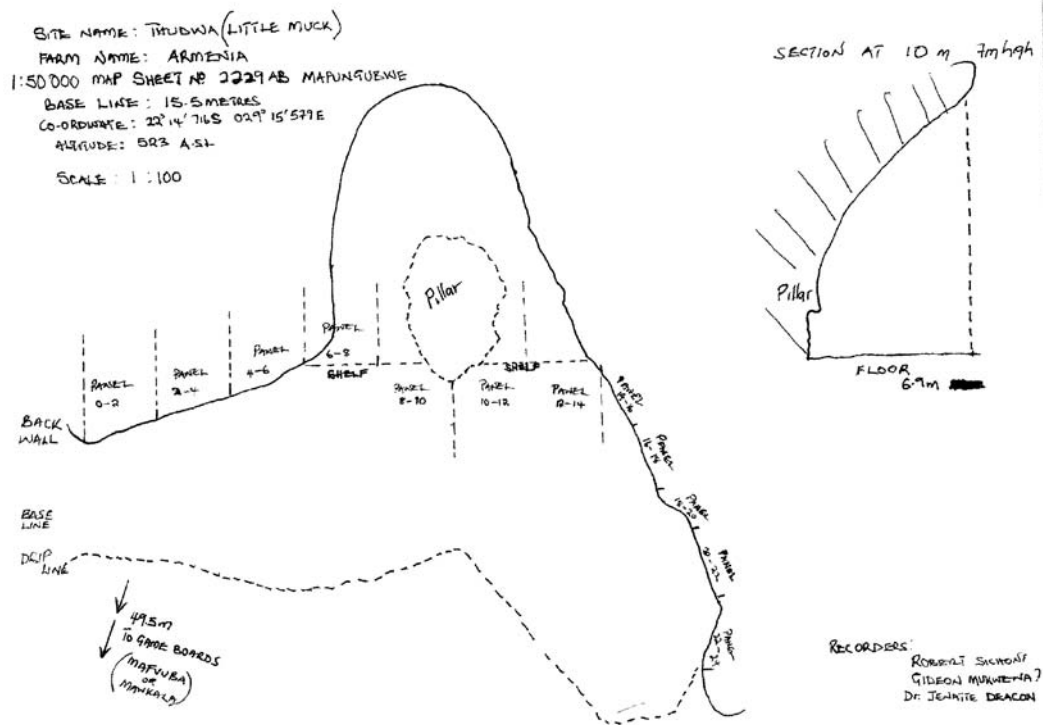 SITE NAME: THUDWA (LITTLE MUCK)
FARM NAME: ARMENIA
1:50 000 MAP SHEET No 2229 AB MAPUNGUBWE
BASE LINE: 15.5 METRES
CO-ORDINATE: 22° 14' 716 S 029° 15' 579 E
ALTITUDE: 523 A.S.L
SCALE: 1:100
SECTION AT 10 m 7m high
Pillar
FLOOR
6.9m
Pillar
PANEL
0-2
PANEL
2-4
PANEL
4-6
PANEL
6-8
SHELF
SHELF
PANEL
8-10
PANEL
10-12
PANEL
12-14
PANEL
14-16
PANEL
16-18
PANEL
18-20
PANEL
20-22
PANEL
22-24
BACK
WALL
BASE
LINE
DRIP
LINE
49.5m
TO GAME BOARDS
(MAFVUBA
OR
MANKALA)
RECORDERS:
ROBERT
GIDEON MUKWENA?
Dr. DEACON